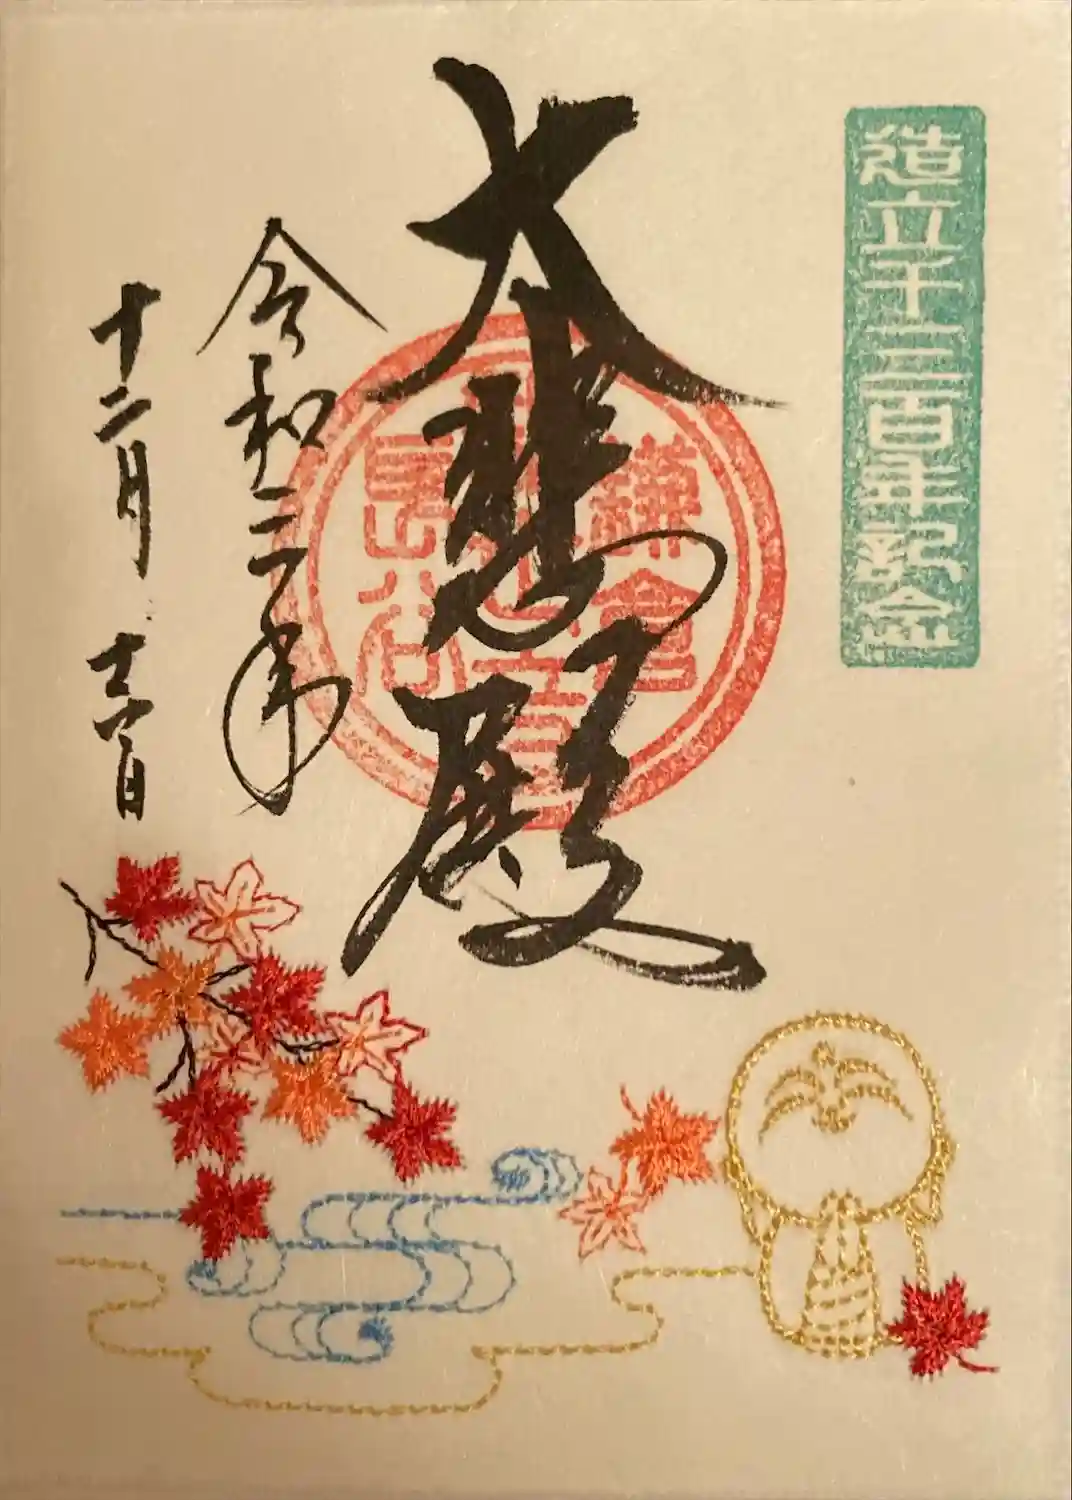 造立千三百年記念
大悲殿
鎌倉
長谷
令和二年
十二月十六日